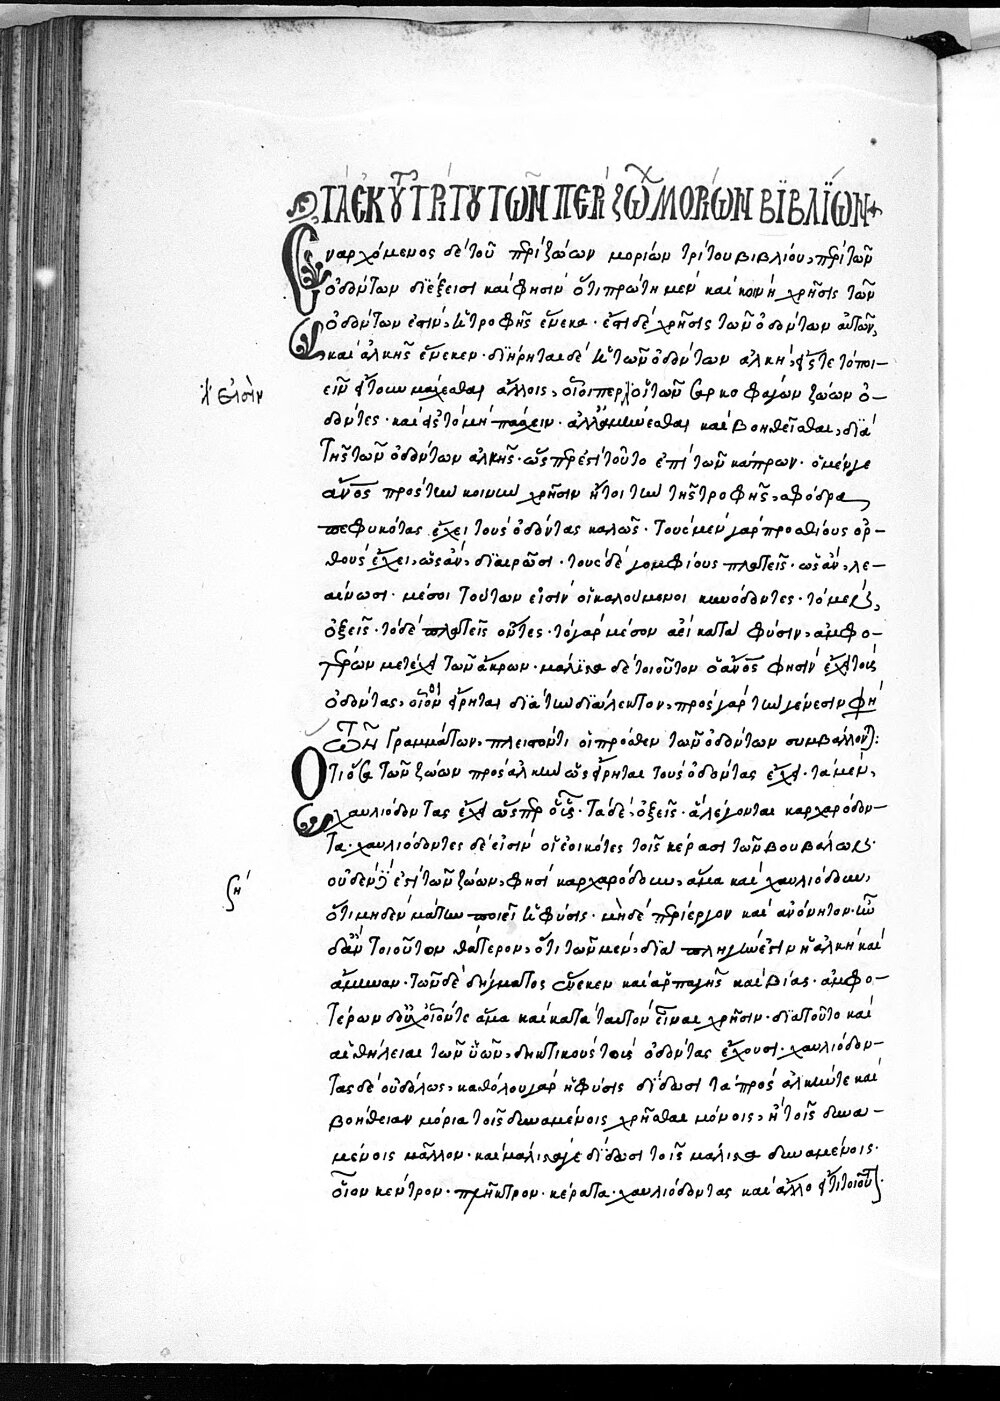 ΤᾺ ἘΚ ΤΟΥ͂ ΤΡΊΤΟΥ ΤΩ͂Ν ΠΕΡῚ ΖΏΩΝ ΜΟΡΊΩΝ ΒΙΒΛΊΩΝ +
Ἐναρχόμενος δὲ τοῦ περὶ ζώων μορίων τρίτου βιβλίου, περὶ τῶν
ὀδόντων διέξεισι καὶ φησὶν ὅτι πρώτη μὲν καὶ κοινὴ χρῆσις τῶν
ὀδόντων ἐστὶν, ἡ τροφῆς ἕνεκα· ἔτι δὲ χρῆσις τῶν ὀδόντων αὐτῶν,
καὶ ἀλκῆς ἕνεκεν· διήρηται δὲ ἡ τῶν ὀδόντων ἀλκὴ, εἴς τε τὸ ποι-
εῖν ἤτοι μάχεσθαι ἄλλοις, οἷοί περ οἱ τῶν σαρκοφάγων ζώων ὀ-
δόντες· καὶ εἰς τὸ μὴ πάσχειν· ἀλλ' ἀμύνεσθαι καὶ βοηθεῖσθαι, διὰ
τῆς τῶν ὀδόντων ἀλκῆς· ὥσπερ ἐστὶ τοῦτο ἐπὶ τῶν κάπρων· ὁ μέν γε
ἄνος πρὸς τὴν κοινὴν χρῆσιν ἤτοι τὴν τῆς τροφῆς, σφόδρα
πεφυκότας ἔχει τοὺς ὀδόντας καλῶς· τοὺς μὲν γὰρ προσθίους ὀρ-
θοὺς ἔχει, ὡς ἂν, διαιρῶσι· τοὺς δὲ γομφίους πλατεῖς· ὡς ἂν, λε-
αίνωσι· μέσοι τούτων εἰσὶν οἱ καλούμενοι κυνόδοντες· τὸ μὲν,
ὀξεῖς· τὸ δὲ πλατεῖς ὄντες· τὸ γὰρ μέσον ἀεὶ κατὰ φύσιν, ἀμφο-
τέρων μετέχει τῶν ἄκρων· μάλιστα δὲ τοιούτον ὁ ἄνος φησὶν ἔχει τοὺς
ὀδόντας, οἷον εἴρηται διὰ τὴν διάλεκτον, πρὸς γὰρ τὴν γένεσιν φη
τῶν γραμμάτων, πλεῖστόν τι οἱ πρόσθεν τῶν ὀδόντων συμβάλλονται:
Ὅτι ὅσα τῶν ζώων πρὸς ἀλκὴν ὡς εἴρηται τοὺς ὀδόντας ἔχει· τὰ μὲν,
χαυλιόδοντας ἔχει ὥσπερ ὗς· τὰ δὲ, ὀξεῖς· ἃ λέγονται καρχαρόδον-
τα· χαυλιόδοντες δέ εἰσιν οἱ ἐοικότες τοῖς κέρασι τῶν βουβάλων·
οὐδὲν δέ ἐστι τῶν ζώων, φησὶ καρχαρόδουν, ἅμα καὶ χαυλιόδουν,
ὅτι μηδὲν μάτην ποιεῖ ἡ φύσις· μηδὲ περίεργον καὶ ἀνόνητον·
δ' ἂν τοιοῦτον θάτερον, ὅτι τῶν μὲν, διὰ πληγῆς ἐστιν ἡ ἀλκὴ καὶ
ἄμυνα· τῶν δὲ δήγματος ἕνεκεν καὶ ἁρπαγῆς καὶ βίας· ἀμφο-
τέρων δ' οὐχ οἷόν τε ἅμα καὶ κατὰ ταυτὸν εἶναι χρῆσιν· διατοῦτο καὶ
αἱ θήλειαι τῶν ὑῶν, δηκτικοὺς τοὺς ὀδόντας ἔχουσι· χαυλιόδον-
τας δὲ οὐδόλως, καθόλου γὰρ ἡ φύσις δίδωσι τὰ πρὸς ἀλκήν τε καὶ
βοήθειαν μόρια τοῖς δυναμένοις χρῆσθαι μόνοις, ἢ τοῖς δυνα-
μένοις μᾶλλον· καὶ μάλιστά γε δίδωσι τοῖς μάλιστα δυναμένοις·
οἷον κέντρον· πλῆκτρον· κέρατα· χαυλιόδοντας καὶ ἄλλο εἴ τι τοιοῦτ.